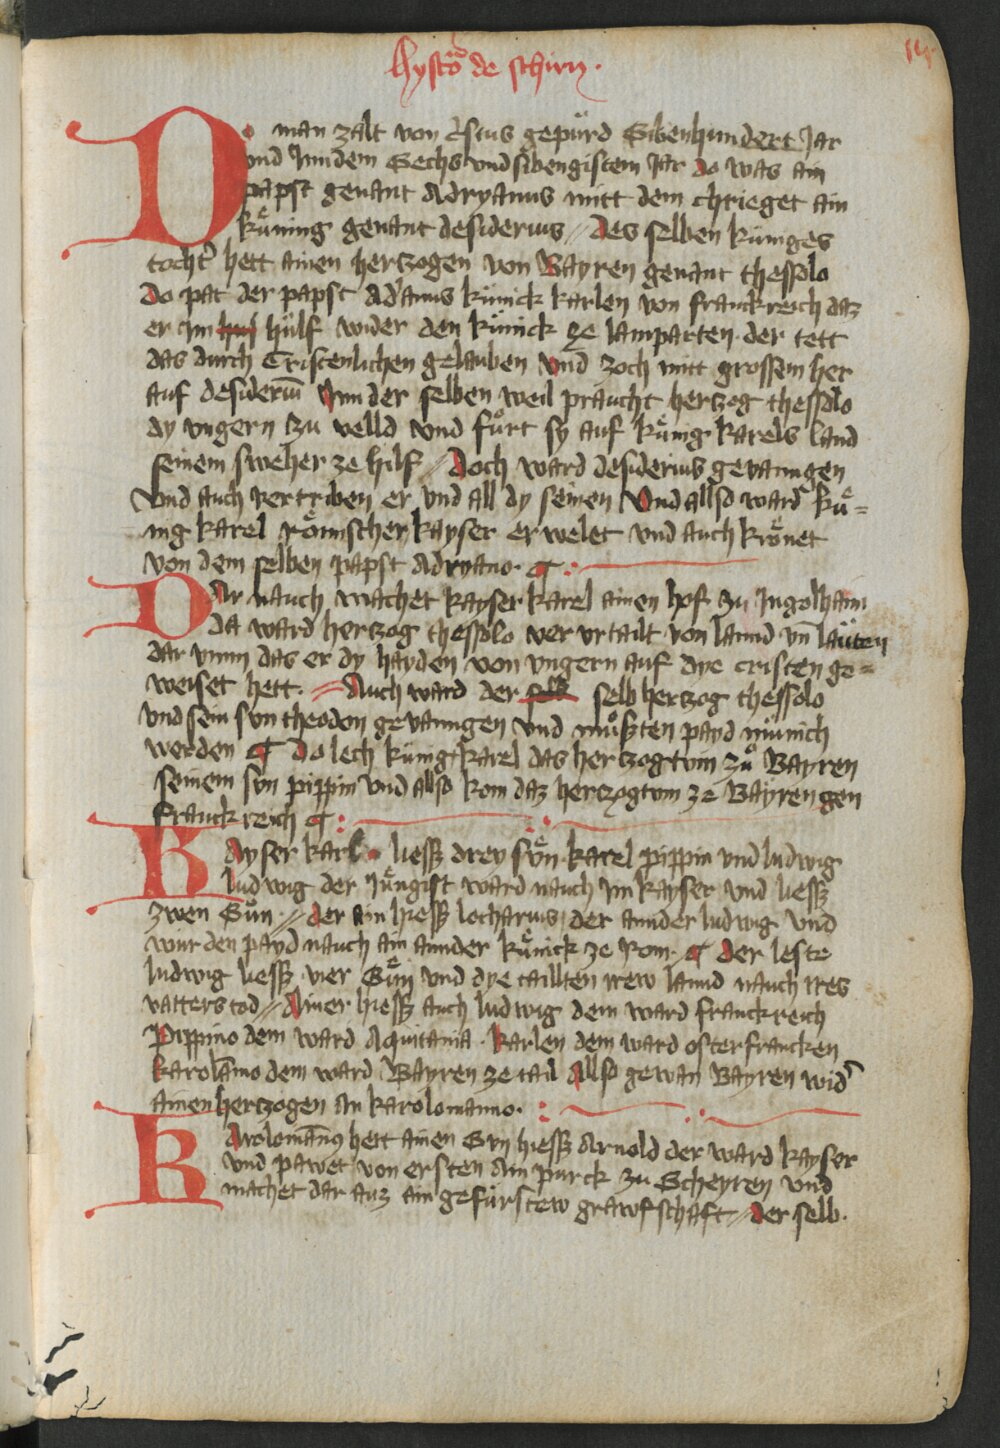 hysto de schirn.
Do man zalt von cristus gepürd Sibenhundert Jar
und Jnndem Sechs und sibengistem Jar do was ain
papst genant Adryanus mitt dem chrieget ain
küning genant desiderius // des selben küniges
tocht hett ainen herczogen von Bayren genant thessolo
do pat der papst Adrianus künick karlen von franckreich daz
er im hülf wider den künick ze lamparten. der tett
das durch Cristenlichen gelauben und zoch mitt grossem her
auf desiderium Jnn der selben weil präucht herczog thessolo
dy ungern zu velld und fürt sy auf künig karels land
seinem sweher ze hilf // Doch ward desiderius gevanngen
und auch vertriben er und all dy seinen Und allso ward kü=
nig karel römischer kayser erwelet und auch krönet
von dem selben papst Adryano. ¶
Dar nauch machet kayser karel ainen hof zu Jngolhaim
da ward herczog thessolo ver urtailt von lannd un läuten
dar umm das er dy hayden von ungern auf dye cristen ge=
weiset hett. // Auch ward der selb herczog thessolo
und sein sun theoden gevanngen und müßten payd münich
werden ¶ do lech künig karel das herczogtum zu Bayren
seinem sun pippin und allso kom daz herczogtum ze Bayren gen
franckreich ¶
Kayser karl liess drey sün karel pippin und ludwig
ludwig der Jüngist ward nauch im kayser und liess
zwen Sün // der ain hiess locharius, der annder ludwig und
wurden payd nauch ain annder künick ze Rom. ¶ der leste
ludwig liess vier Sün und dye taillten irew lannd nauch ires
vatters tod // Ainer hiess auch ludwig dem ward franckreich
Pippino dem ward Aquitania. karlen dem ward osterfrancken
karolamo dem ward Bayren ze tail Allso gewan Bayren wid
ainen herczogen an karolomanno.
Karolomanus hett ainen Sun hiess Arnold der ward kayser
und pawet von ersten ain purck zu Scheyren und
machet dar auz ain gefürstew grawfschaft // der selb.